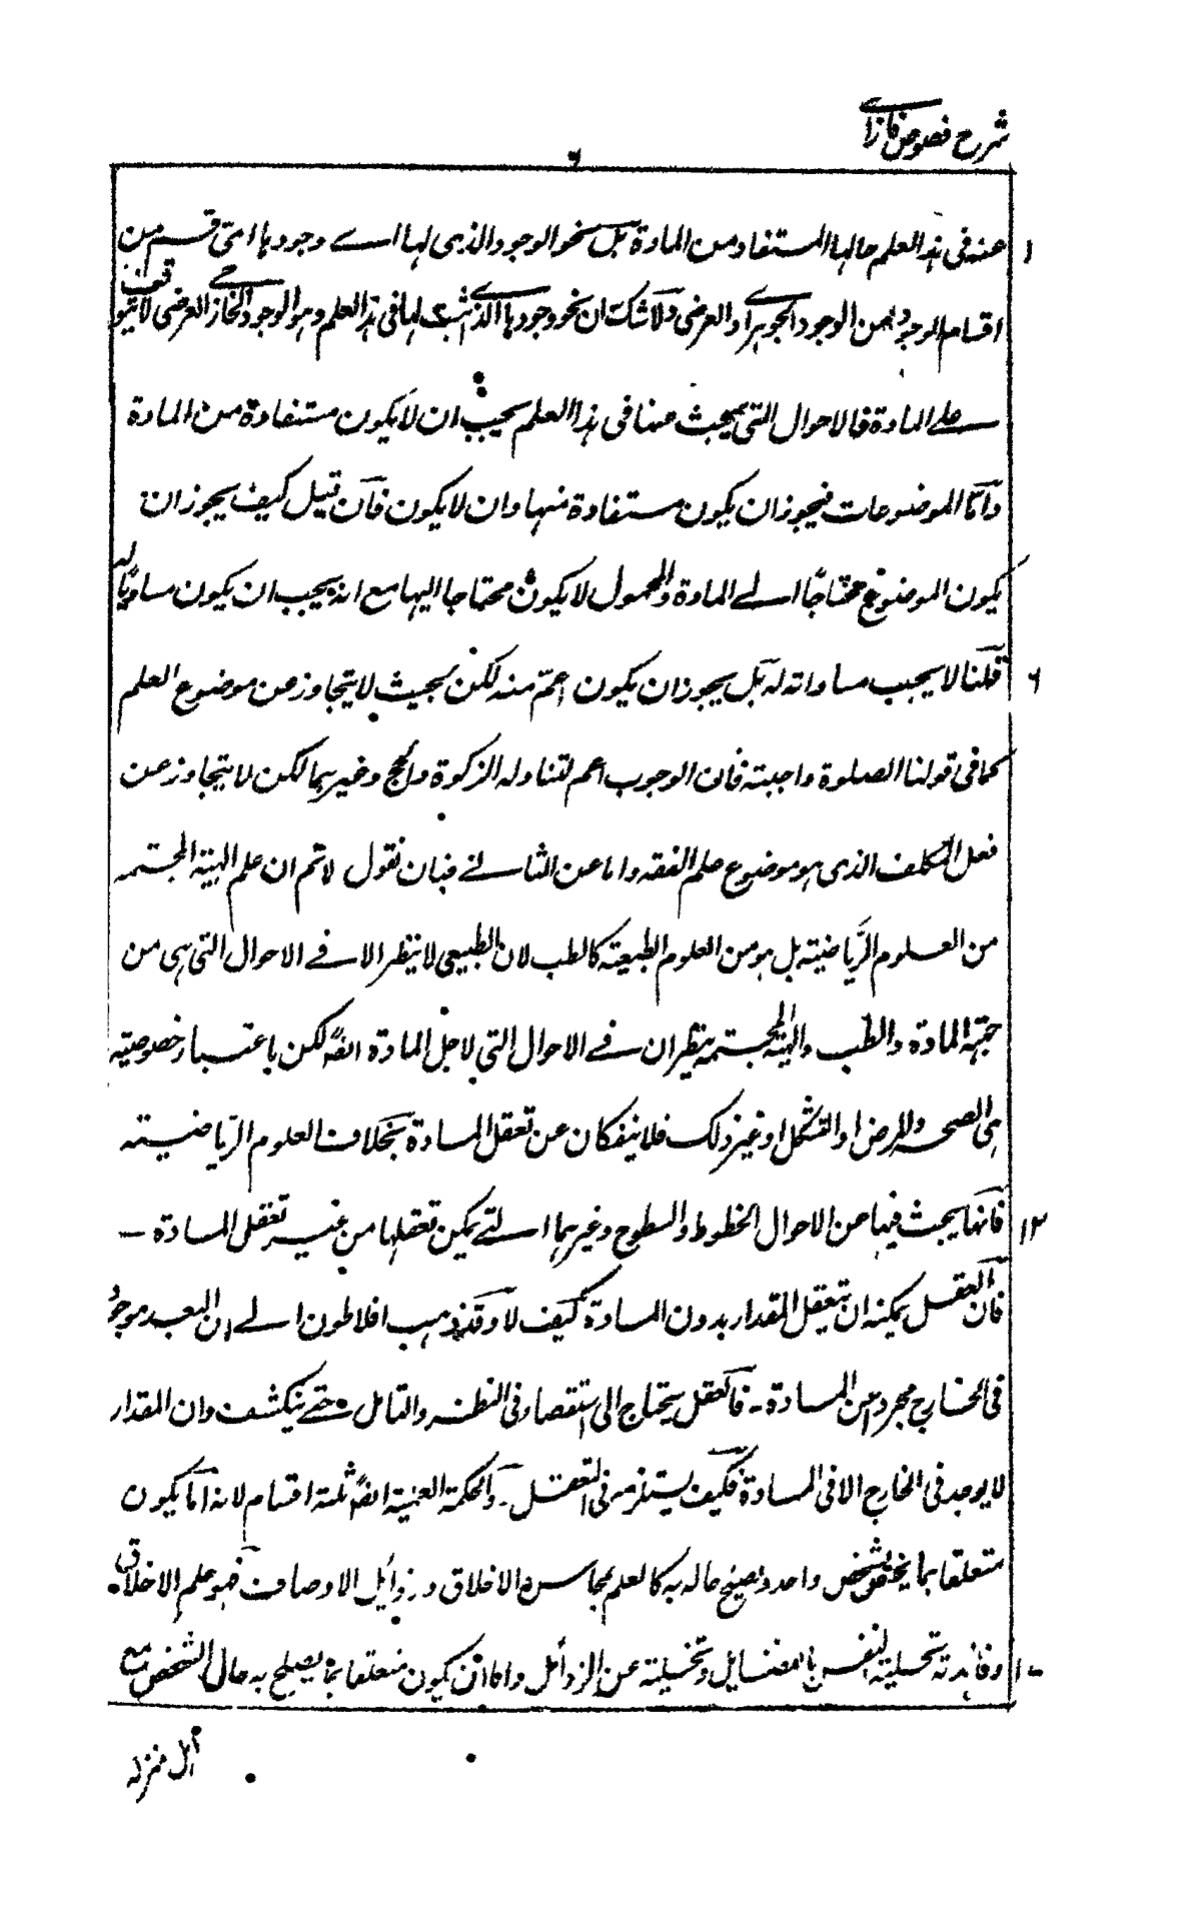 شرح فصوص فارابی
٦
عنه فی هذا العلم حالها المستفاد من المادة بل نحو الوجود الذی لها اے وجودها ای قسم من
اقسام الوجود من الوجود الجوهری او العرضی ولا شک ان نحو وجودها الذی ثبت لها فی هذا العلم وهو الوجود الخارجی العرضی لا یتوقف
علی المادة فالاحوال التی یبحث عنها فی هذا العلم یجب ان لا یکون مستفادة من المادة
واما الموضوعات فیجوز ان یکون مستفادة منها وان لا یکون فان قیل کیف یجوز ان
یکون الموضوع محتاجًا الے المادة والمحمول لا یکون محتاجا الیها مع انه یجب ان یکون مساویًا له
قلنا لا یجب مساواته له بل یجوز ان یکون اعمّ منه لکن بحیث لا یتجاوز عن موضوع العلم
کما فی قولنا الصلوة واجبة فان الوجوب اعم لتناوله الزکوة والحج وغیرهما لکن لا یتجاوز عن
فعل المکلف الذی هو موضوع علم الفقه واما عن الثانی فبان نقول لا نم ان علم الهیئة المجسمة
من العلوم الریاضیة بل هو من العلوم الطبیعیة کالطب لان الطبیعی لا ینظر الا فے الاحوال التی هی من
جهة المادة والطب والهیئة المجسمة ینظران فے الاحوال التی لاجل المادة ایضًا لکن باعتبار خصوصیة
هی الصحة والمرض او التشکل او غیر ذلک فلا ینفکان عن تعقل المادة بخلاف العلوم الریاضیة
فانها یبحث فیها عن الاحوال الخطوط والسطوح وغیرهما التے یمکن تعقلها من غیر تعقل المادة -
فان العقل یمکنه ان یتعقل المقدار بدون المادة کیف لا وقد ذهب افلاطون الے ان البعد موجود
فی الخارج مجرد عن المادة - فالعقل یحتاج الی استقصاء فی النظر والتامل حتے ینکشف وان المقدار
لا یوجد فی الخارج الا فی المادة فکیف یستلزم فی التعقل - والحکمة العملیة ایضًا ثلثة اقسام لانه اما یکون
متعلقا بما یختص بشخص واحد ویصلح حاله به کالعلم بمحاسن الاخلاق ورذایل الاوصاف فهو علم الاخلاق
وفائدته تحلیة النفس بالفضایل وتخلیته عن الرذائل واما ان یکون متعلقا بما یصلح به حال الشخص مع
اهل منزله
١
٦
١٢